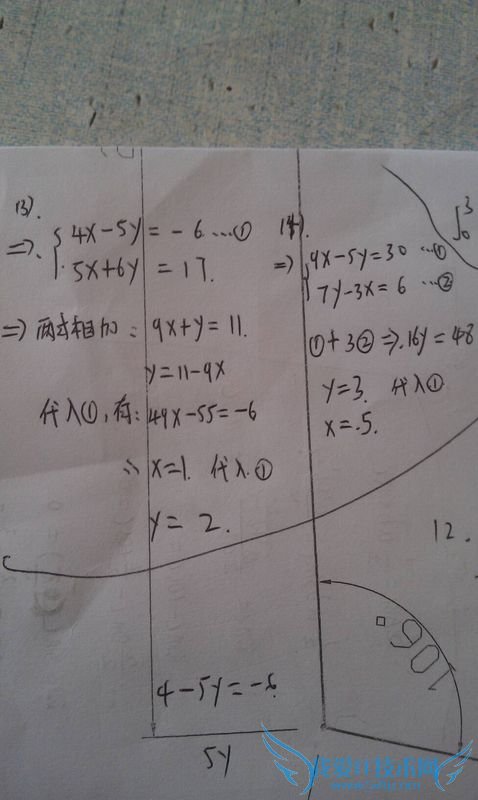 13).
⇒. { 4x-5y = -6 ...①
5x+6y = 17.
⇒ 两式相加: 9x+y = 11.
y=11-9x
代入①,有: 49x-55=-6
∴ x=1. 代入①
y = 2.
4-5y=-6.
5y
14).
⇒ { 9x-5y=30 ...①
7y-3x=6 ...②
①+3② ⇒. 16y=48
y=3. 代入①
x=.5.
∫₀³
12.
106.°